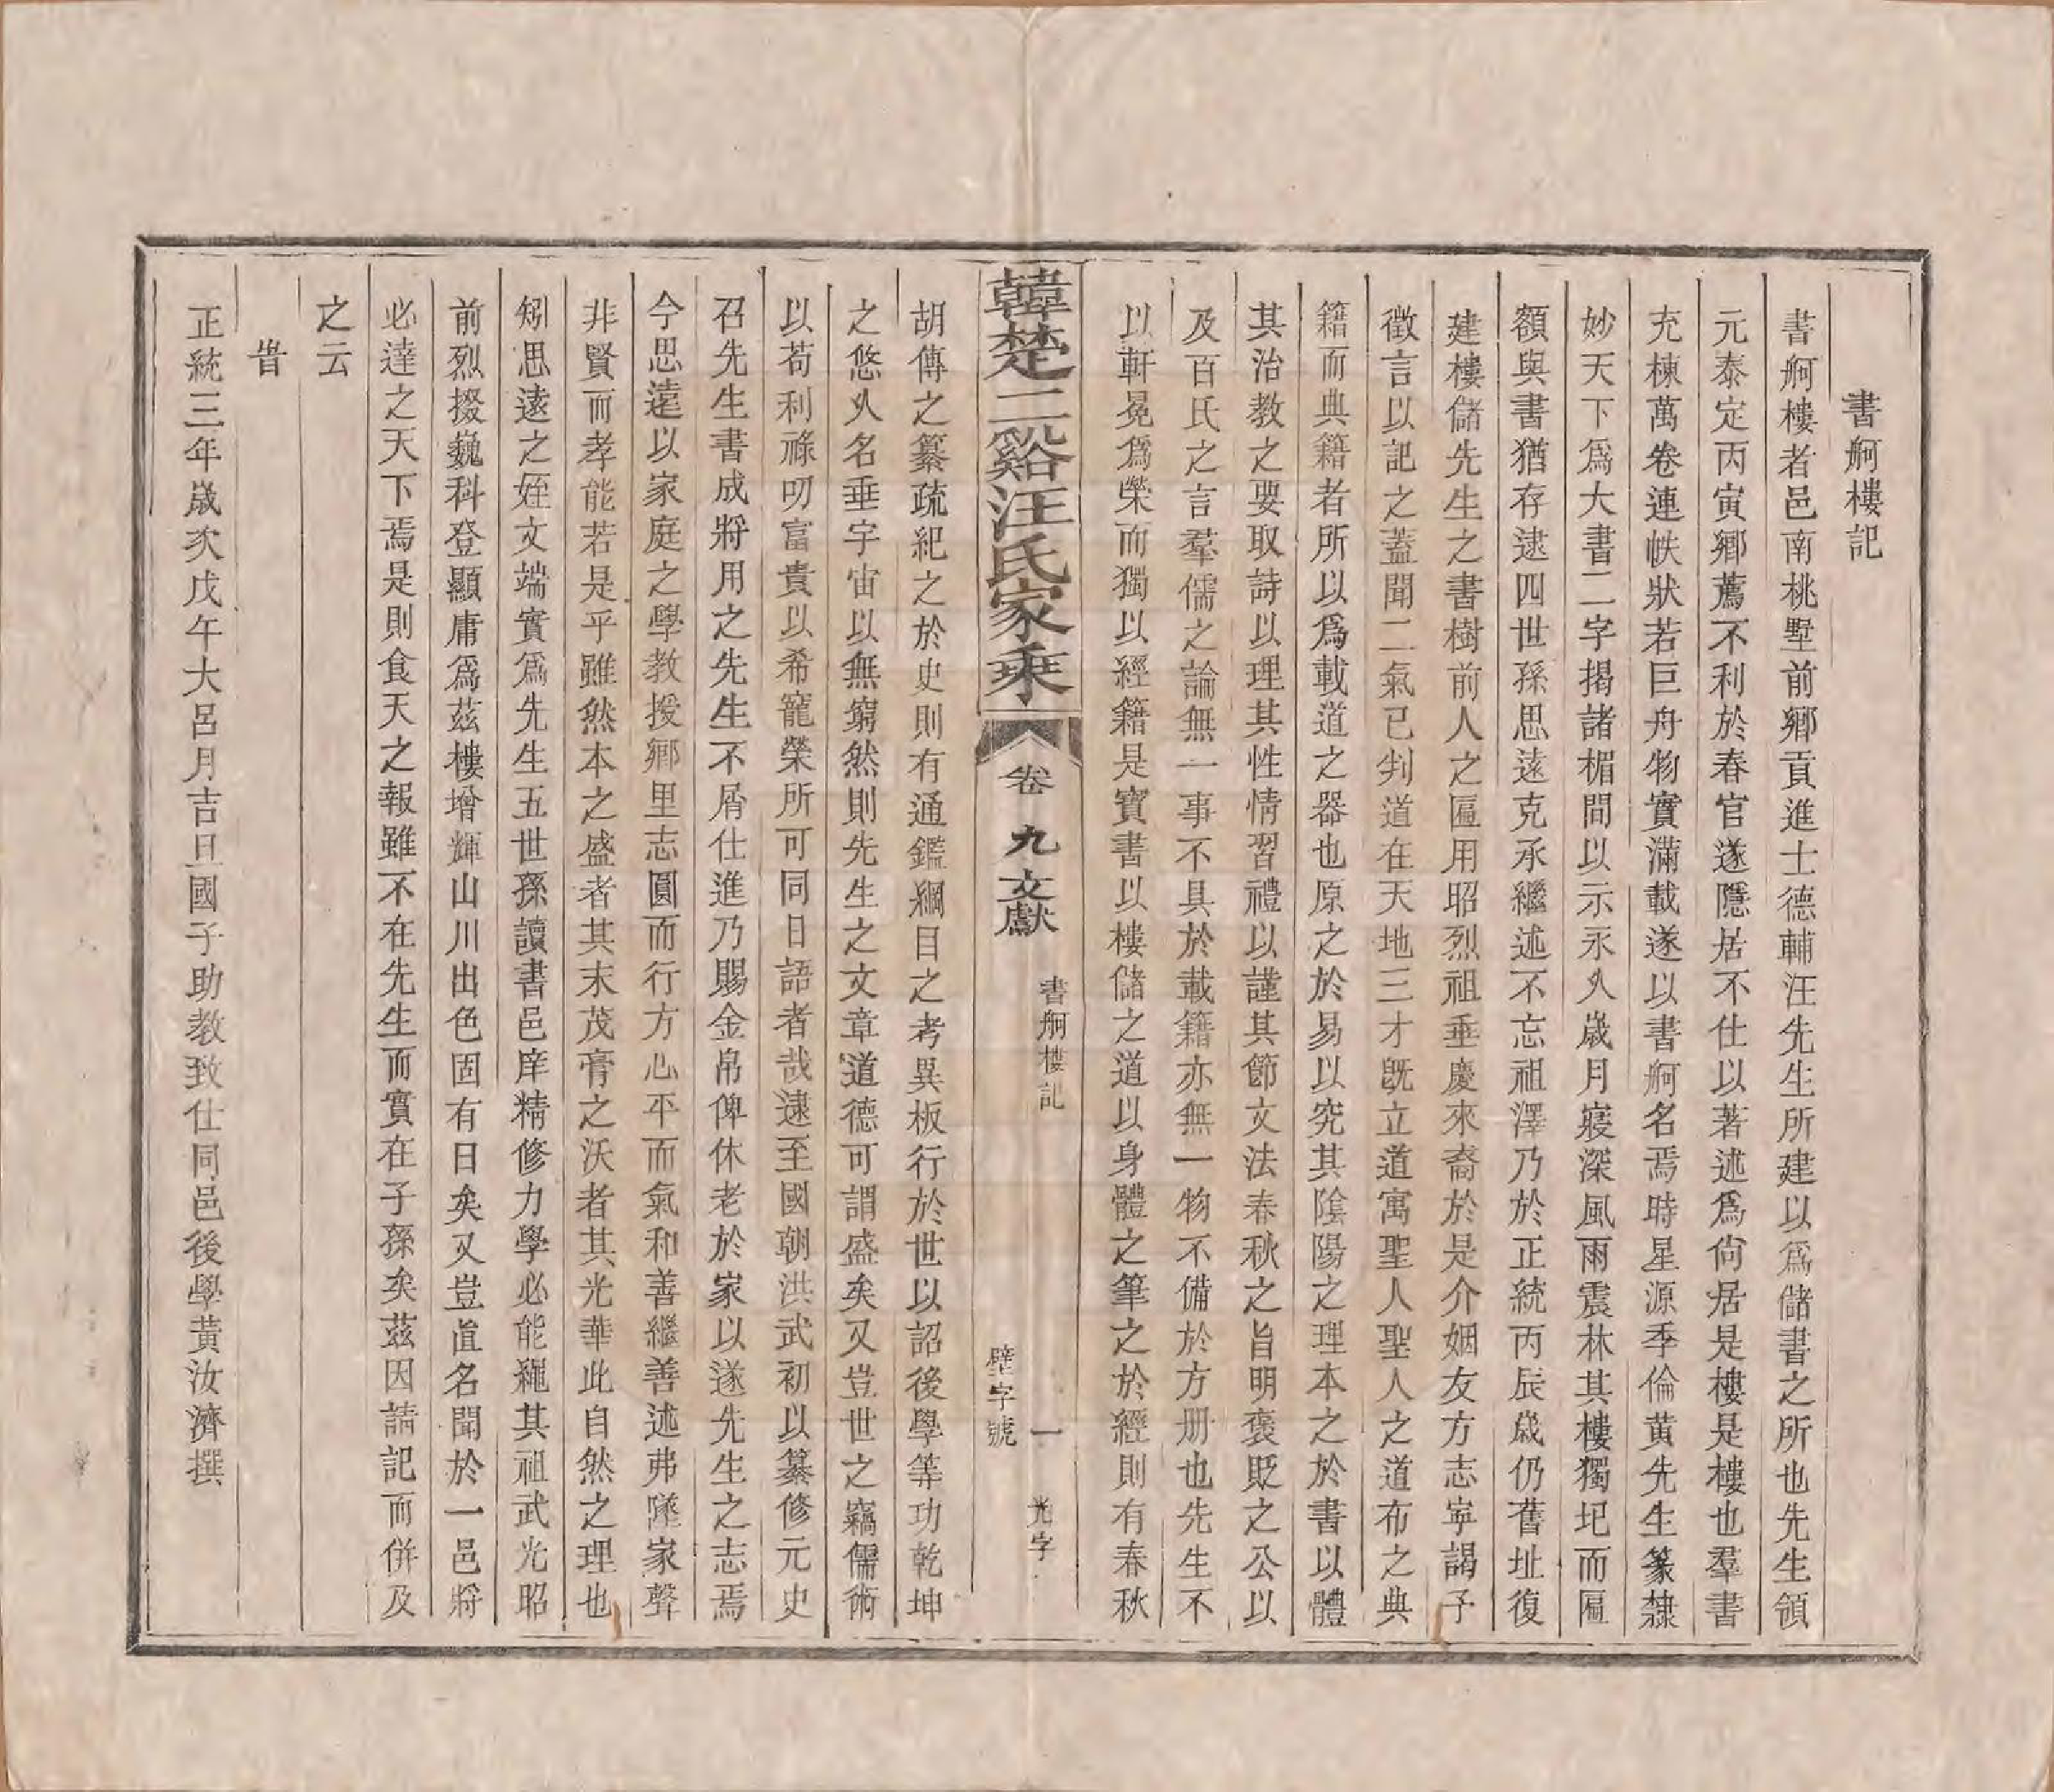 書舸樓記
書舸樓者邑南桃墅前鄉貢進士德輔汪先生所建以爲儲書之所也先生領
元泰定丙寅鄉薦不利於春官遂隱居不仕以著述爲尙居是樓是樓也羣書
充棟萬卷連帙狀若巨舟物實滿載遂以書舸名焉時星源季倫黄先生篆隸
妙天下爲大書二字揭諸楣間以示永久歲月寢深風雨震林其樓獨圮而匾
額與書猶存逮四世孫思遠克承繼述不忘祖澤乃於正統丙辰歲仍舊址復
建樓儲先生之書樹前人之匾用昭烈祖垂慶來裔於是介姻友方志寧謁予
徵言以記之蓋聞二氣已判道在天地三才旣立道寓聖人聖人之道布之典
籍而典籍者所以爲載道之器也原之於易以究其陰陽之理本之於書以體
其治教之要取詩以理其性情習禮以謹其節文法春秋之旨明褒貶之公以
及百氏之言羣儒之論無一事不具於載籍亦無一物不備於方册也先生不
以軒冕爲榮而獨以經籍是寶書以樓儲之道以身體之筆之於經則有春秋
韓楚二谿汪氏家乘
卷九文獻
書舸樓記
一
光字
壁字號
胡傳之纂疏紀之於史則有通鑑綱目之考異板行於世以詔後學等功乾坤
之悠久名垂宇宙以無窮然則先生之文章道德可謂盛矣又豈世之竊儒術
以苟利祿叨富貴以希寵榮所可同日語者哉逮至國朝洪武初以纂修元史
召先生書成將用之先生不屑仕進乃賜金帛俾休老於家以遂先生之志焉
今思遠以家庭之學教授鄉里志圓而行方心平而氣和善繼善述弗墜家聲
非賢而孝能若是乎雖然本之盛者其末茂膏之沃者其光華此自然之理也
矧思遠之姪文端實爲先生五世孫讀書邑庠精修力學必能繩其祖武光昭
前烈掇巍科登顯庸爲茲樓增輝山川出色固有日矣又豈直名聞於一邑將
必達之天下焉是則食天之報雖不在先生而實在子孫矣茲因請記而併及
之云
旹
正統三年歲次戊午大呂月吉旦國子助教致仕同邑後學黃汝濟撰